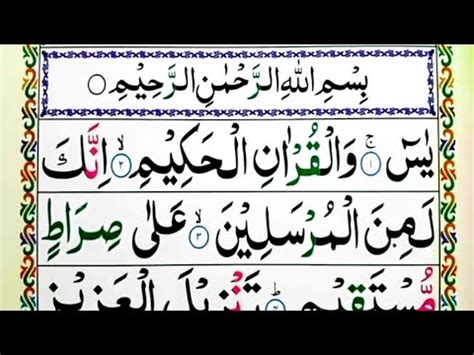 بِسْمِ اللهِ الرَّحْمٰنِ الرَّحِيْمِ ○
يٰسٓ ۚ ﴿۱﴾ وَالْقُرْاٰنِ الْحَكِيْمِ ۙ ﴿۲﴾ اِنَّكَ
لَمِنَ الْمُرْسَلِيْنَ ۙ ﴿۳﴾ عَلٰى صِرَاطٍ
مُّسْتَقِيْمٍ ؕ ﴿۴﴾ تَنْزِيْلَ الْعَزِيْزِ